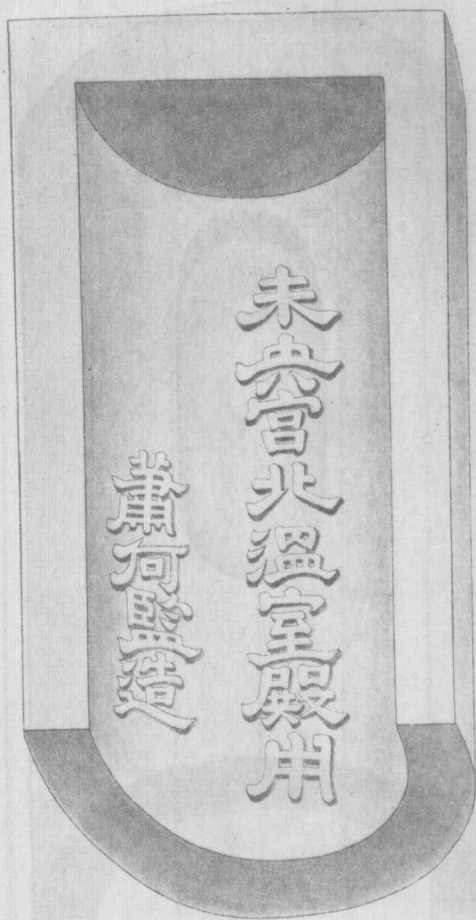 未央宮北溫室殿用
蕭何監造